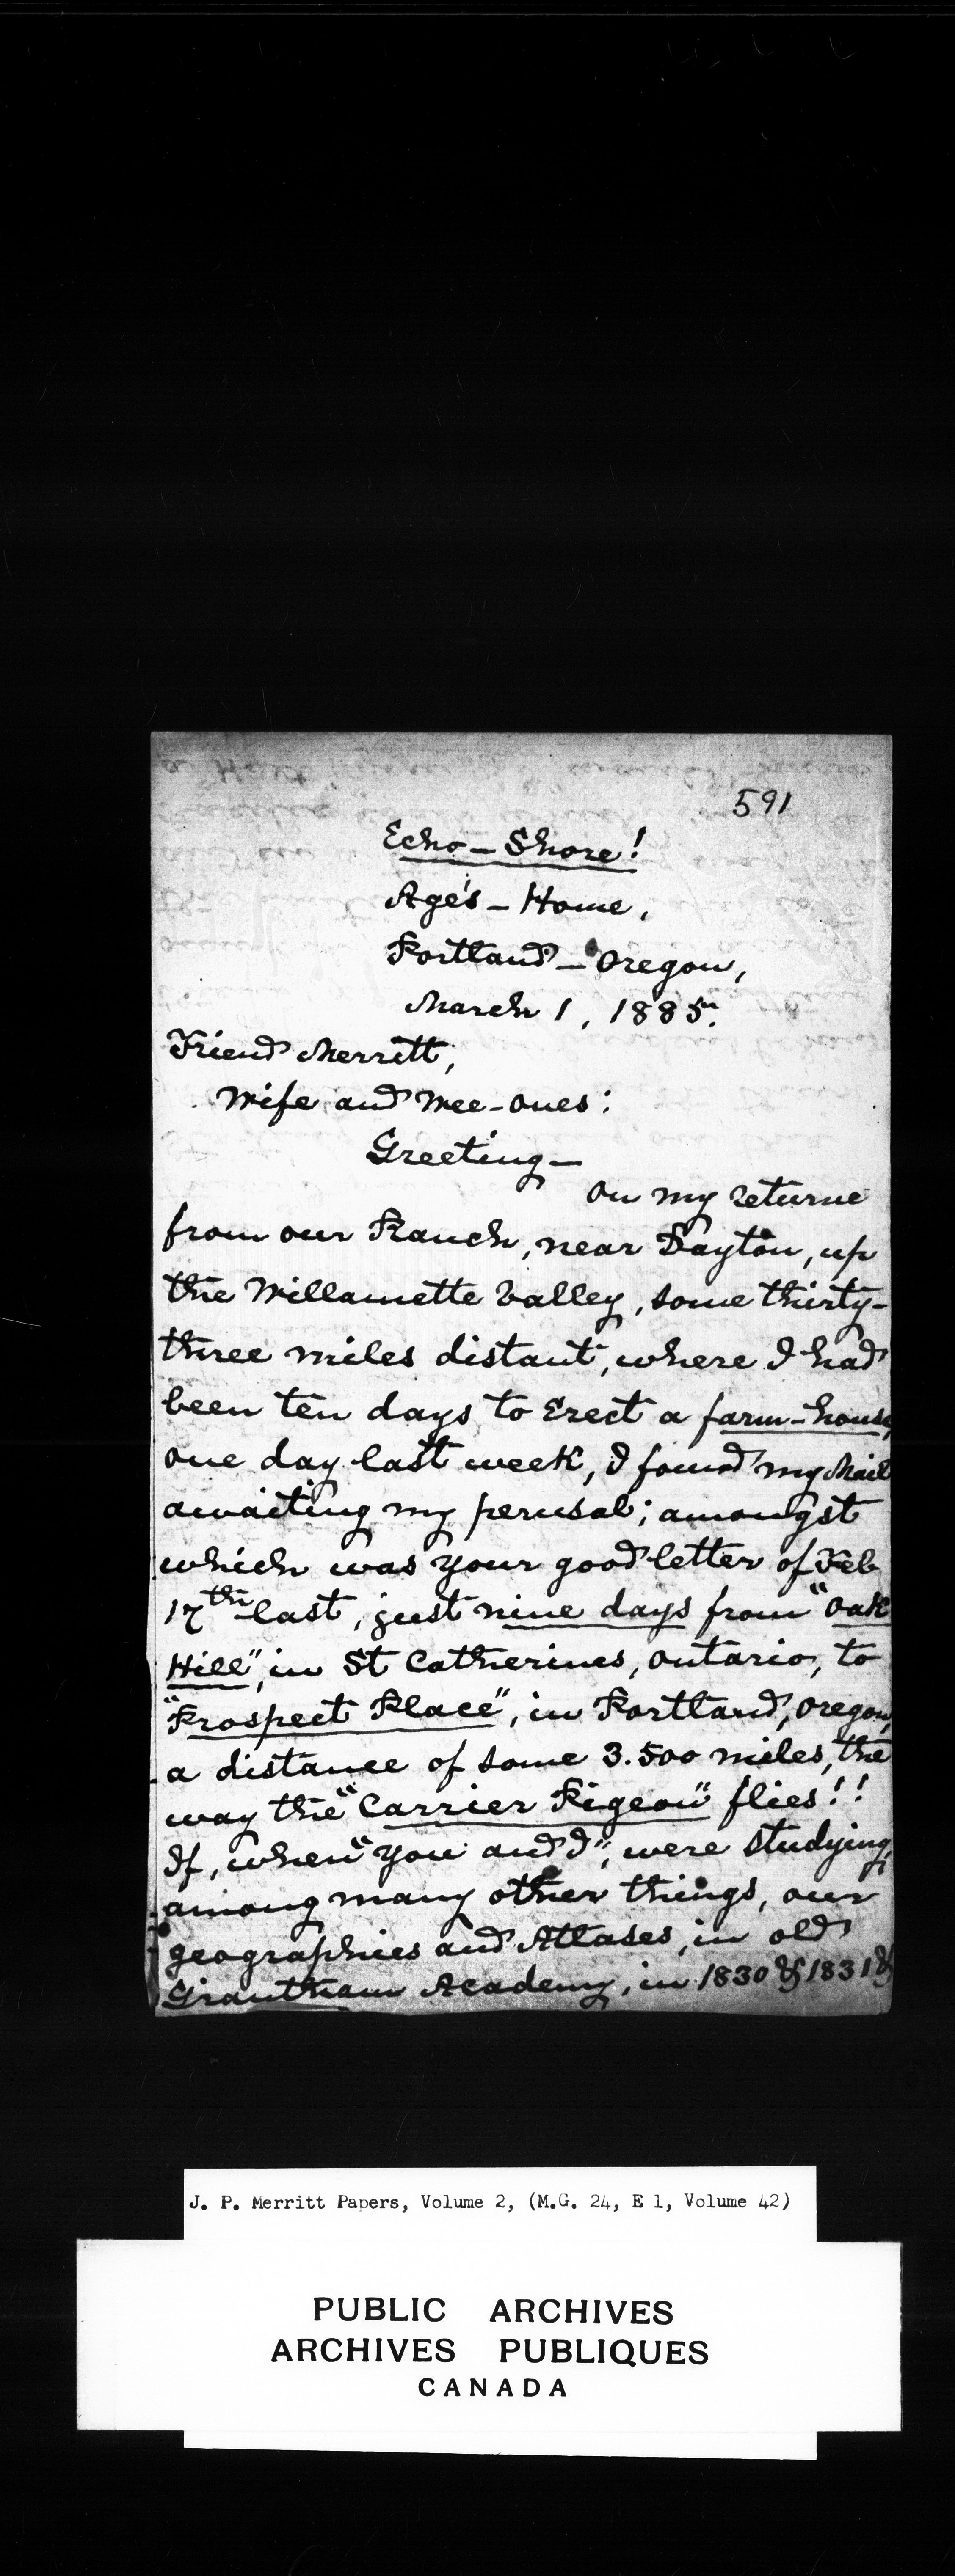 591
Echo - Shore!
Age's - Home,
Portland - Oregon,
March 1, 1885.
Friend Merritt,
Wife and Wee-ones:
Greeting -
On my returne
from our Ranch, near Dayton, up
the Willamette Valley, some thirty-
three miles distant, where I had
been ten days to Erect a farm-house,
one day last week, I found my Mail
awaiting my perusal; amongst
which was your good letter of Feb
17th last, just nine days from "Oak
Hill", in St Catherines, Ontario, to
"Prospect Place", in Portland, Oregon,
a distance of some 3.500 miles, the
way the "Carrier Pigeon" flies!!
If, when "you and I", were studying,
among many other things, our
geographies and Atlases, in old
Grantham Academy, in 1830 & 1831 &
J. P. Merritt Papers, Volume 2, (M.G. 24, E 1, Volume 42)
PUBLIC ARCHIVES
ARCHIVES PUBLIQUES
CANADA